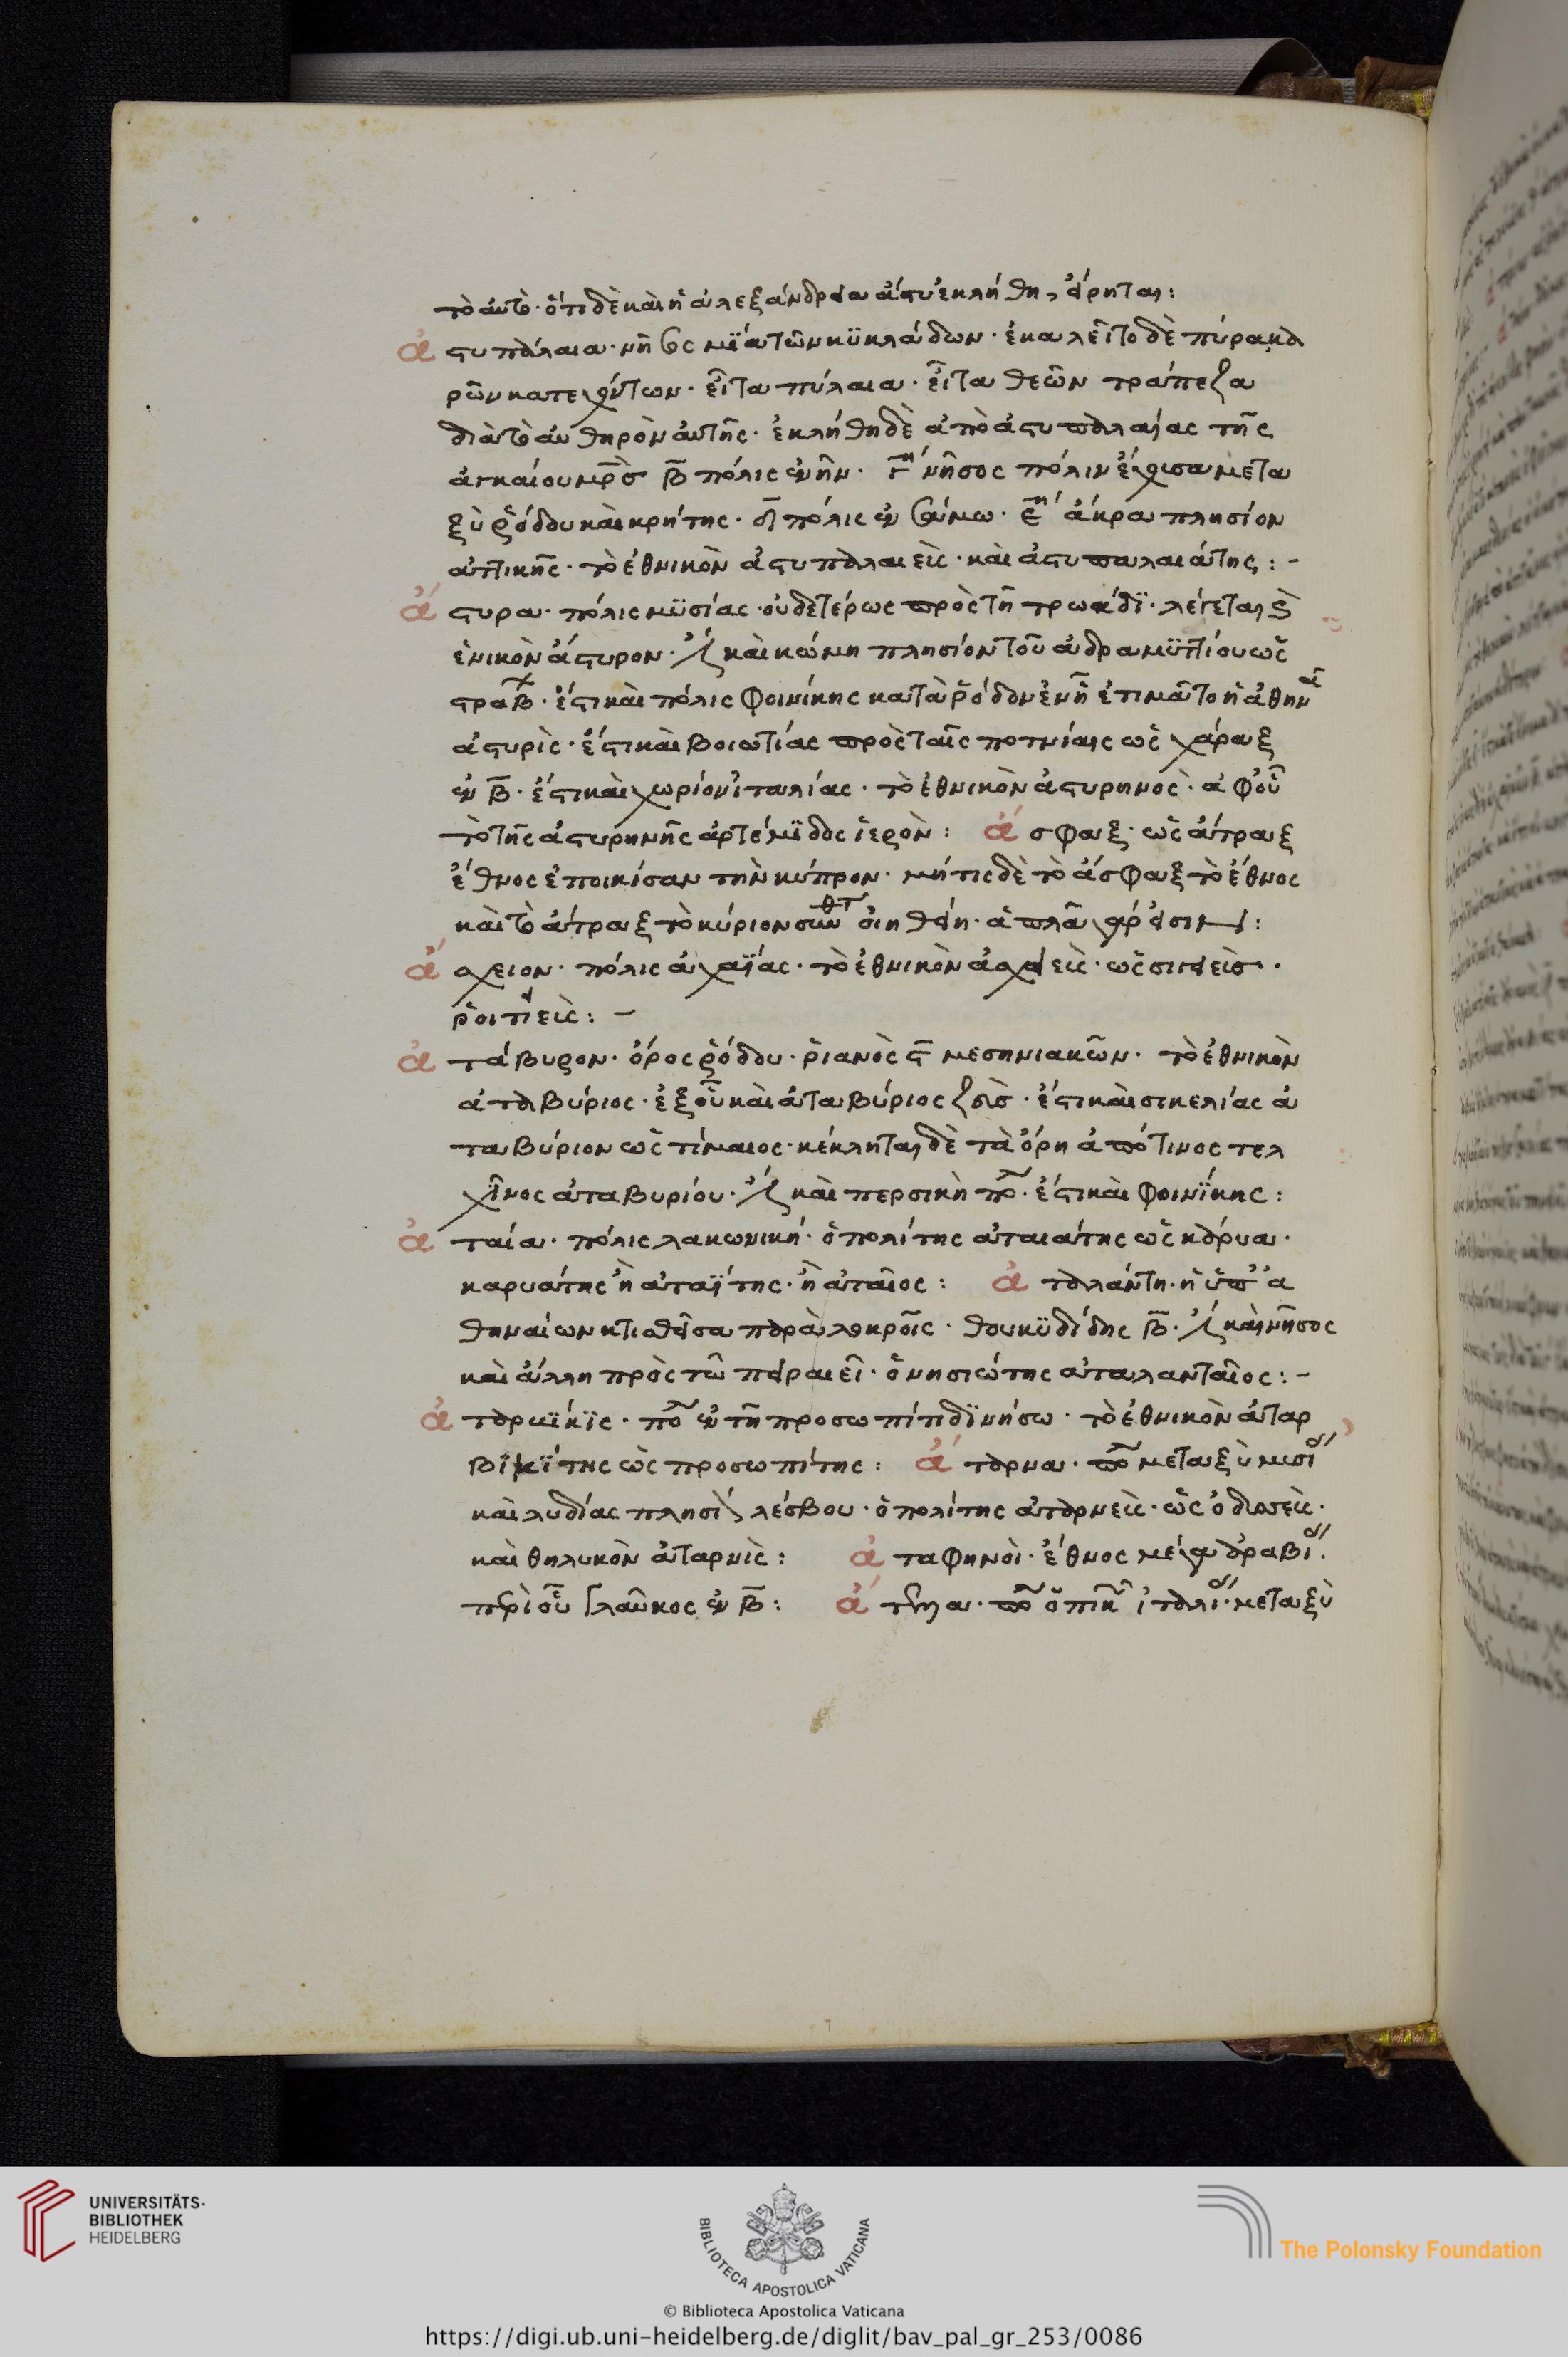 τὸ αὐτό· ὅτι δὲ καὶ ἡ ἀλεξάνδρεια ἄστυ ἐκλήθη, εἴρηται:
ἀστυπάλαια· νῆσος μΐα τῶν κϋκλάδων· ἐκαλεῖτο δὲ πύρα κα
ρῶν κατεχόντων· εἶτα πύλαια· εἶτα θεῶν τράπεζα
διὰ τὸ ἀνθηρὸν αὐτῆς· ἐκλήθη δὲ ἀπὸ ἀστυπαλαίας τῆς
ἀγκαίου μρ̅ς β̅ πόλις ἐν ἦν· γ̅η νῆσος πόλιν ἔχουσα μετα
ξὺ ῥόδου καὶ κρήτης· δ̅ πόλις ἐν σάμω· ε̅η ἄκρα πλησίον
ἀττικῆς· τὸ ἐθνικὸν ἀστυπαλαιεὶς· καὶ ἀστυπαλαιάτης:-
ἄστυρα· πόλις μϋσίας· οὐδετέρως πρὸς τῆ τρωάδϊ· λέγεται ϗ
ἑνικὸν ἄστυρον· ἔστι καὶ κώμη πλησίον τοῦ ἀδραμϋττίου ὡς
στραβ· ἔστι καὶ πόλις φοινίκης κατὰ ῥόδον ἐν ἧ ἐτιμᾶτο ἡ ἀθηνᾶ
ἀστυρὶς· ἔστι καὶ βοιωτίας πρὸς ταῖς ποτνίαις ὡς χάραξ
ἐν β̅· ἔστι καὶ χωρίον ἰταλίας· τὸ ἐθνικὸν ἀστυρηνὸς· ἀφοὗ
τὸ τῆς ἀστυρηνῆς ἀρτέμϊδος ἱερὸν: ἄσφαξ· ὡς ἄτραξ
ἔθνος ἐποικίσαν τὴν κύπρον· μήτις δὲ τὸ ἄσφαξ τὸ ἔθνος
καὶ τὸ ἄτραξ τὸ κύριον οἰηθείη·
ἄσχειον· πόλις ἀχαΐας· τὸ ἐθνικὸν ἀσχειεὶς· ὡς σιγειεὶς·
ῥοιτιειεὶς:-
ἀτάβυρον· ὄρος ῥόδου· ῥιανὸς ϛ̅ μεσηνιακῶν· τὸ ἐθνικὸν
ἀταβύριος· ἐξ οὗ καὶ ἀταβύριος ζεὺς· ἔστι καὶ σικελίας ἀ
ταβύριον ὡς τίμαιος· κέκληται δὲ τὰ ὄρη ἀπό τινος τελ
χῖνος ἀταβυρίου· ἔστι καὶ περσικὴ πό· ἔστι καὶ φοινΐκης:
ἀταία· πόλις λακωνική· ὁ πολίτης ἀταιάτης ὡς κάρυα·
καρυάτης ἢ ἀταΐτης· ἢ ἀταῖος: ἀταλάντη· ἡ ὑπ' ἀ
θηναίων κτισθεῖσα παρὰ λοκροῖς· θουκϋδίδης β̅· ἔστι καὶ νῆσος
καὶ ἄλλη πρὸς τῶ πειραιεῖ· ὁ νησιώτης ἀταλανταῖος:-
ἀταρμΐκϊς· πό ἐν τῆ προσωπίτιδϊ νήσω· τὸ ἐθνικὸν ἀταρ
βϊκΐτης ὡς προσωπίτης: ἄταρνα· πό μεταξὺ μυσί
καὶ λυδίας πλησίον λέσβου· ὁ πολίτης ἀταρνεὶς· ὡς
καὶ θηλυκὸν ἀταρνὶς: ἀταφηνοὶ· ἔθνος ἀραβί.
περὶ οὗ γλαῦκος ἐν β̅: ἄτελλα· πό ὀπικῶν ἰταλί· μεταξὺ
UNIVERSITÄTS-
BIBLIOTHEK
HEIDELBERG
BIBLIOTECA APOSTOLICA VATICANA
The Polonsky Foundation
© Biblioteca Apostolica Vaticana
https://digi.ub.uni-heidelberg.de/diglit/bav_pal_gr_253/0086